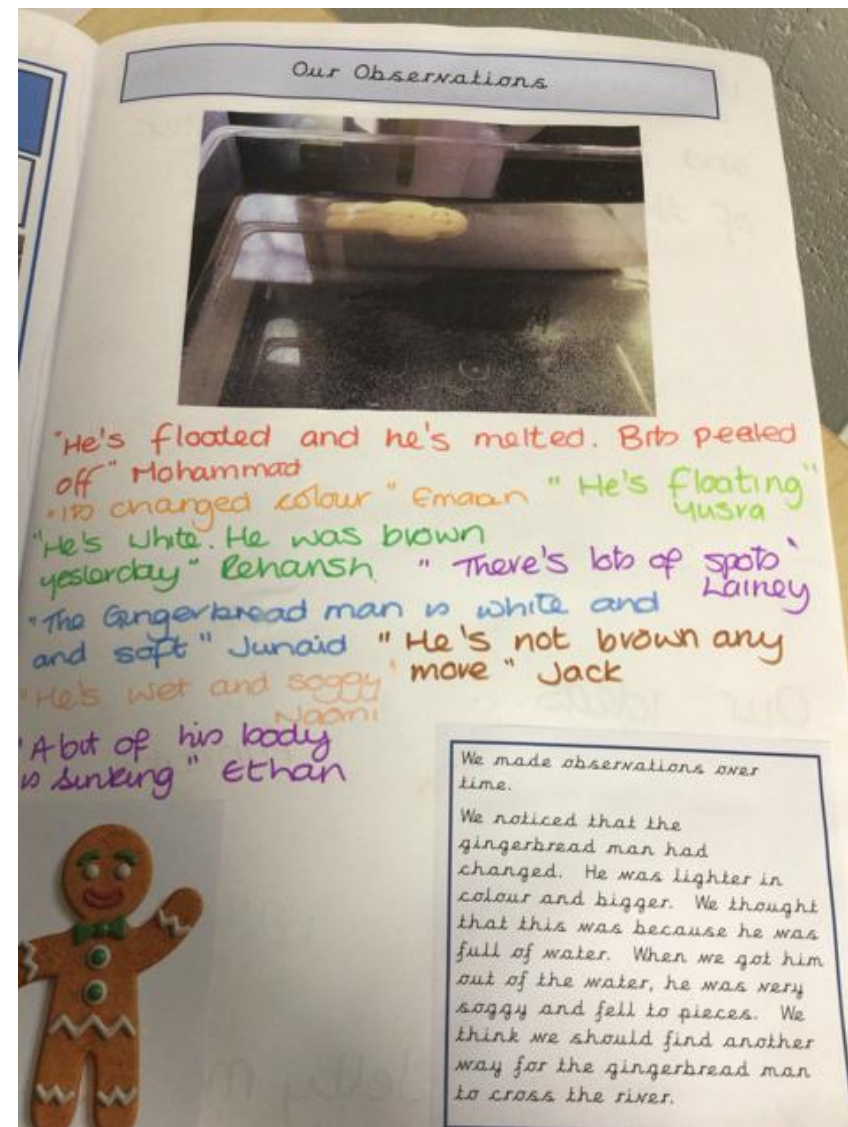 Our Observations
"He's floated and he's melted. Bits peeled
off" Mohammad
"Its changed colour" Emaan "He's floating"
Yusra
"He's white. He was brown
yesterday" Rehansh "There's lots of spots"
Lainey
"The Gingerbread man is white and
and soft" Junaid "He's not brown any
more" Jack
"He's wet and soggy"
Naomi
"A bit of his body
is sinking" Ethan
We made observations over
time.
We noticed that the
gingerbread man had
changed. He was lighter in
colour and bigger. We thought
that this was because he was
full of water. When we got him
out of the water, he was very
soggy and fell to pieces. We
think we should find another
way for the gingerbread man
to cross the river.